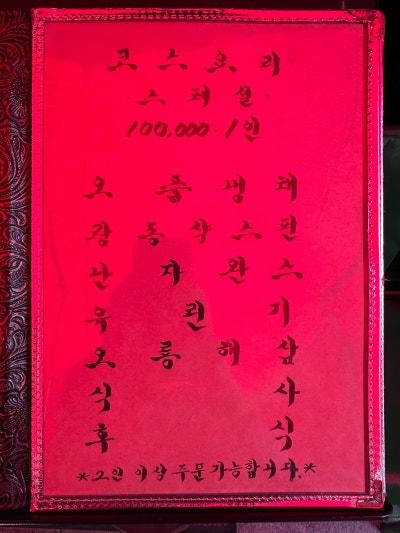 코스요리
·스페셜·
100,000·1인
오품냉채
광동샥스핀
난자완스
유린기
오룡해삼
식사
후식
*2인 이상 주문가능합니다.*